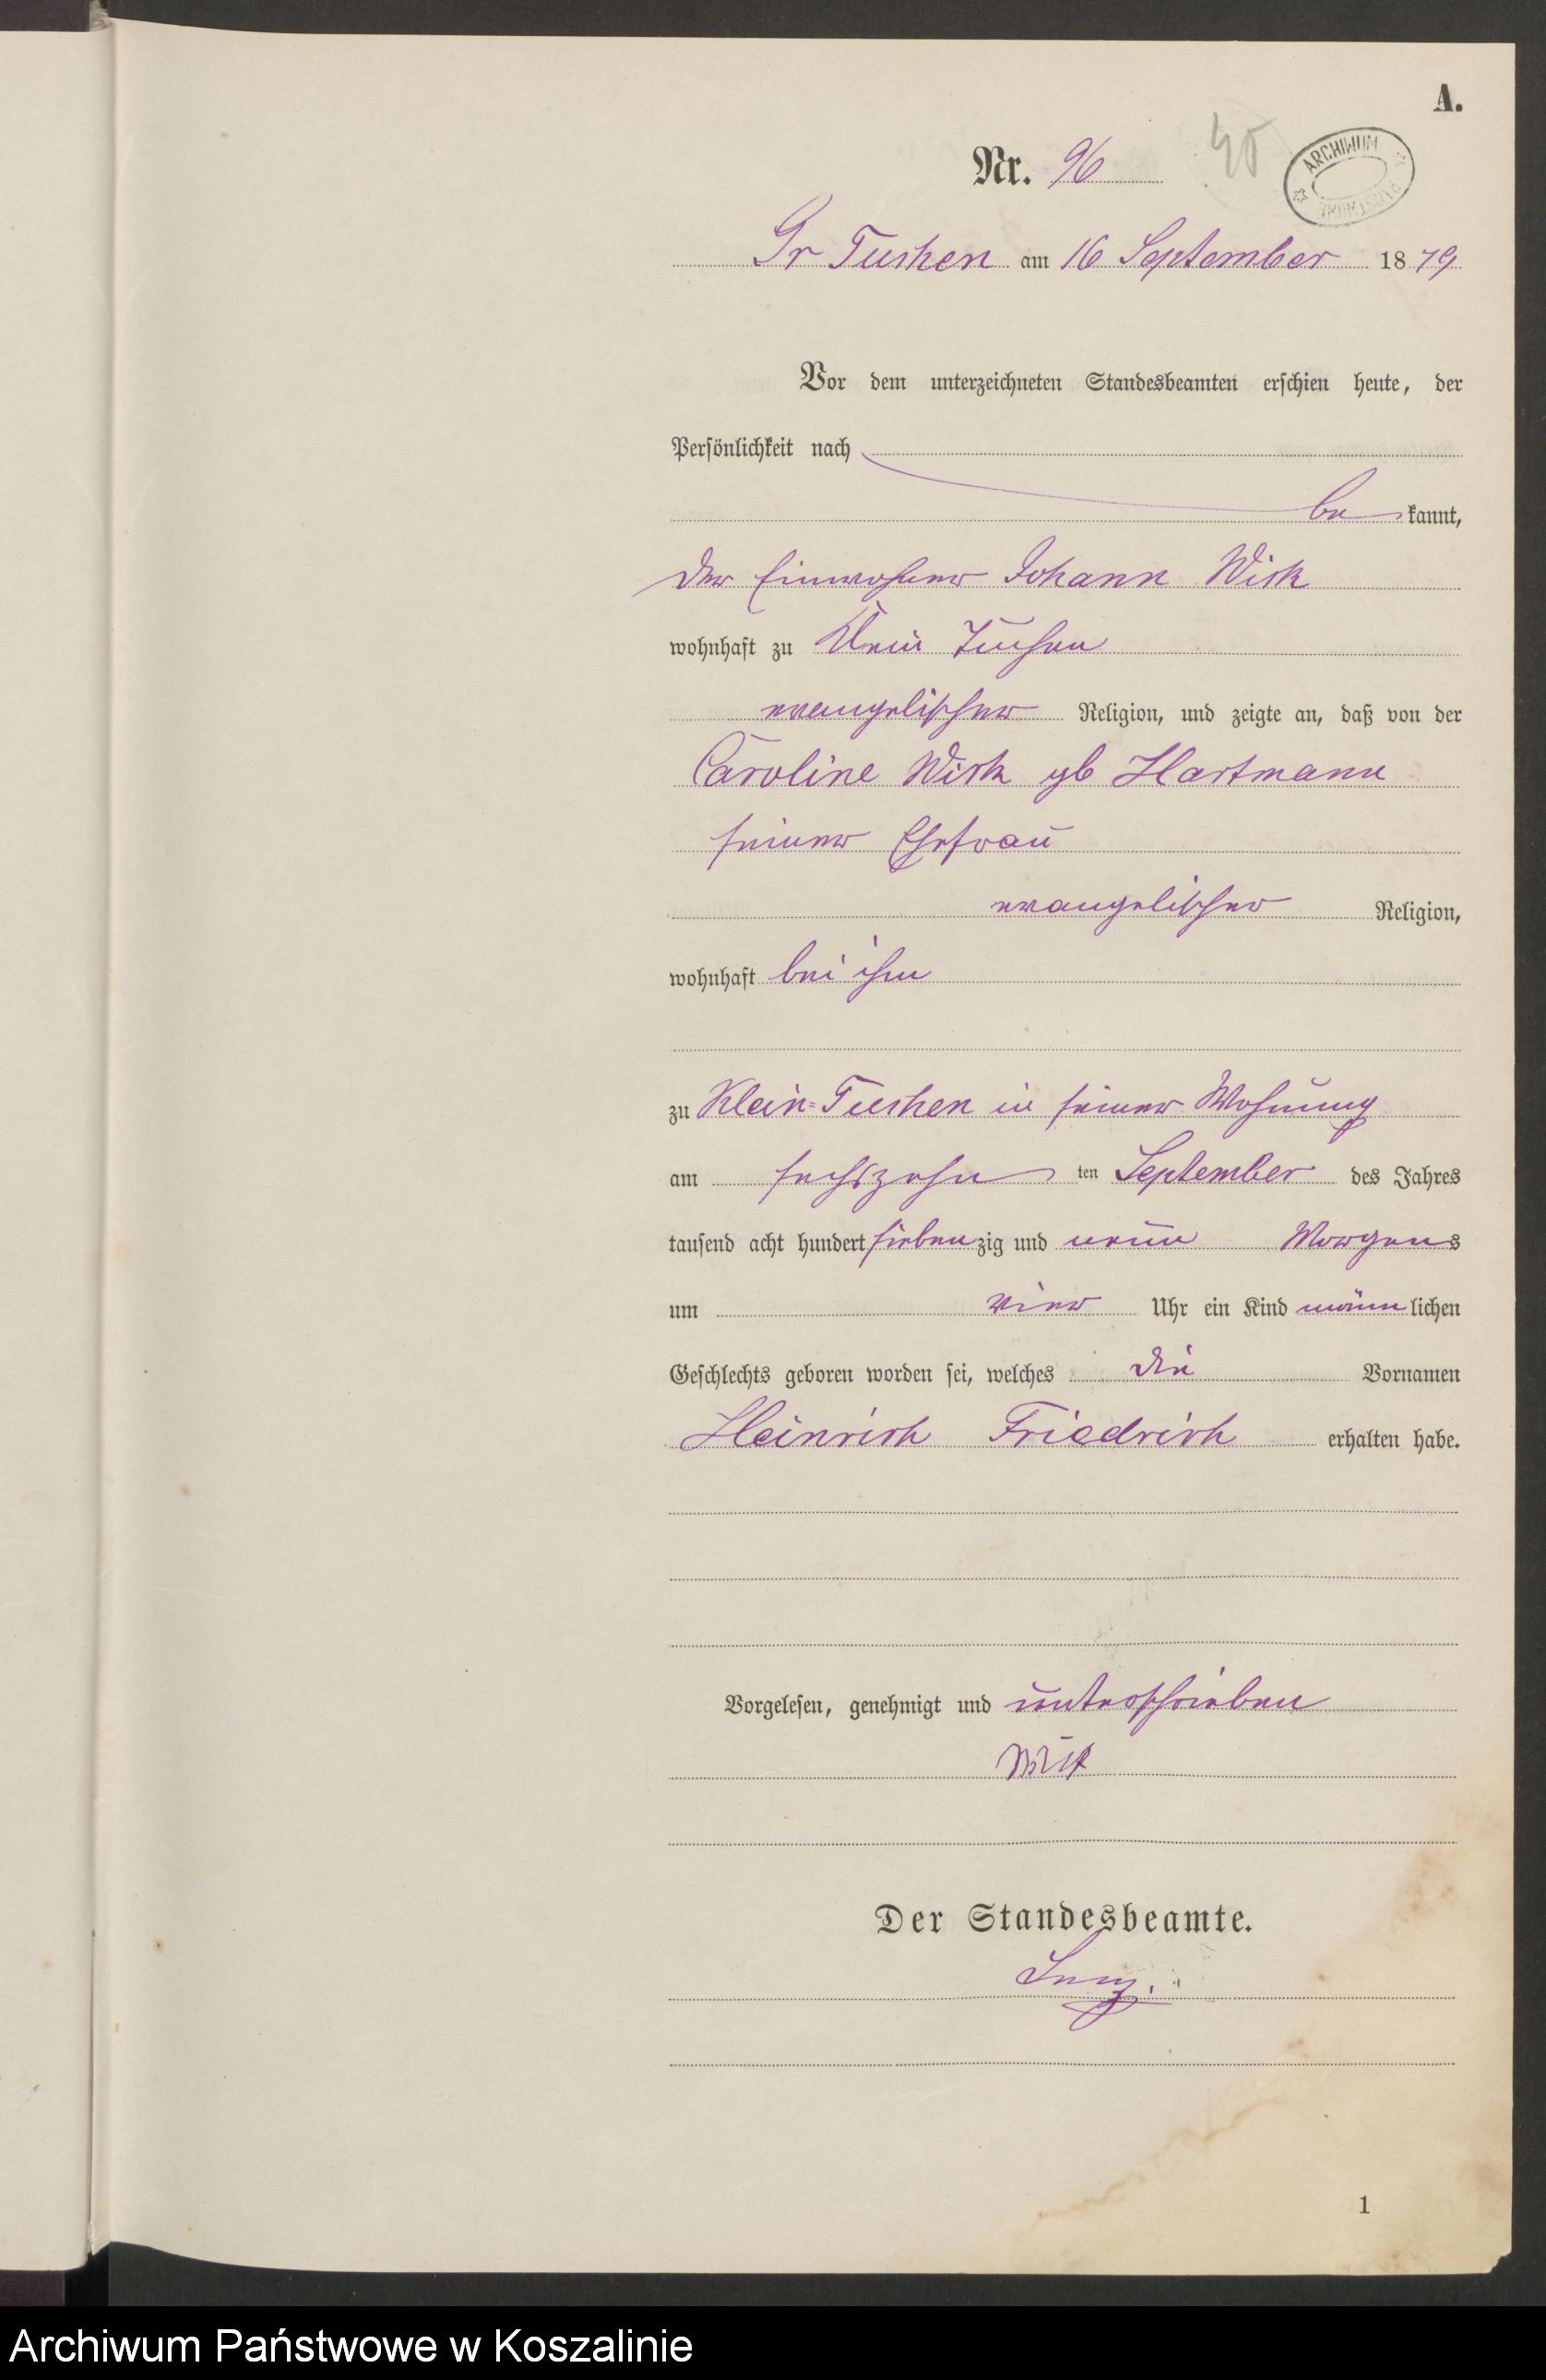 A.
Nr. 96
45
ARCHIWUM
Gr Tuchen am 16 September 1879
Vor dem unterzeichneten Standesbeamten erschien heute, der
Persönlichkeit nach
be kannt,
der Einwohner Johann Wick
wohnhaft zu Klein Tuchen
evangelischer Religion, und zeigte an, daß von der
Caroline Wick gb Hartmann
seiner Ehefrau
evangelischer Religion,
wohnhaft bei ihm
zu Klein=Tuchen in seiner Wohnung
am sechszehn ten September des Jahres
tausend acht hundert sieben zig und neun Morgens
um vier Uhr ein Kind männ lichen
Geschlechts geboren worden sei, welches die Vornamen
Heinrich Friedrich erhalten habe.
Vorgelesen, genehmigt und unterschrieben
Der Standesbeamte.
1
Archiwum Państwowe w Koszalinie